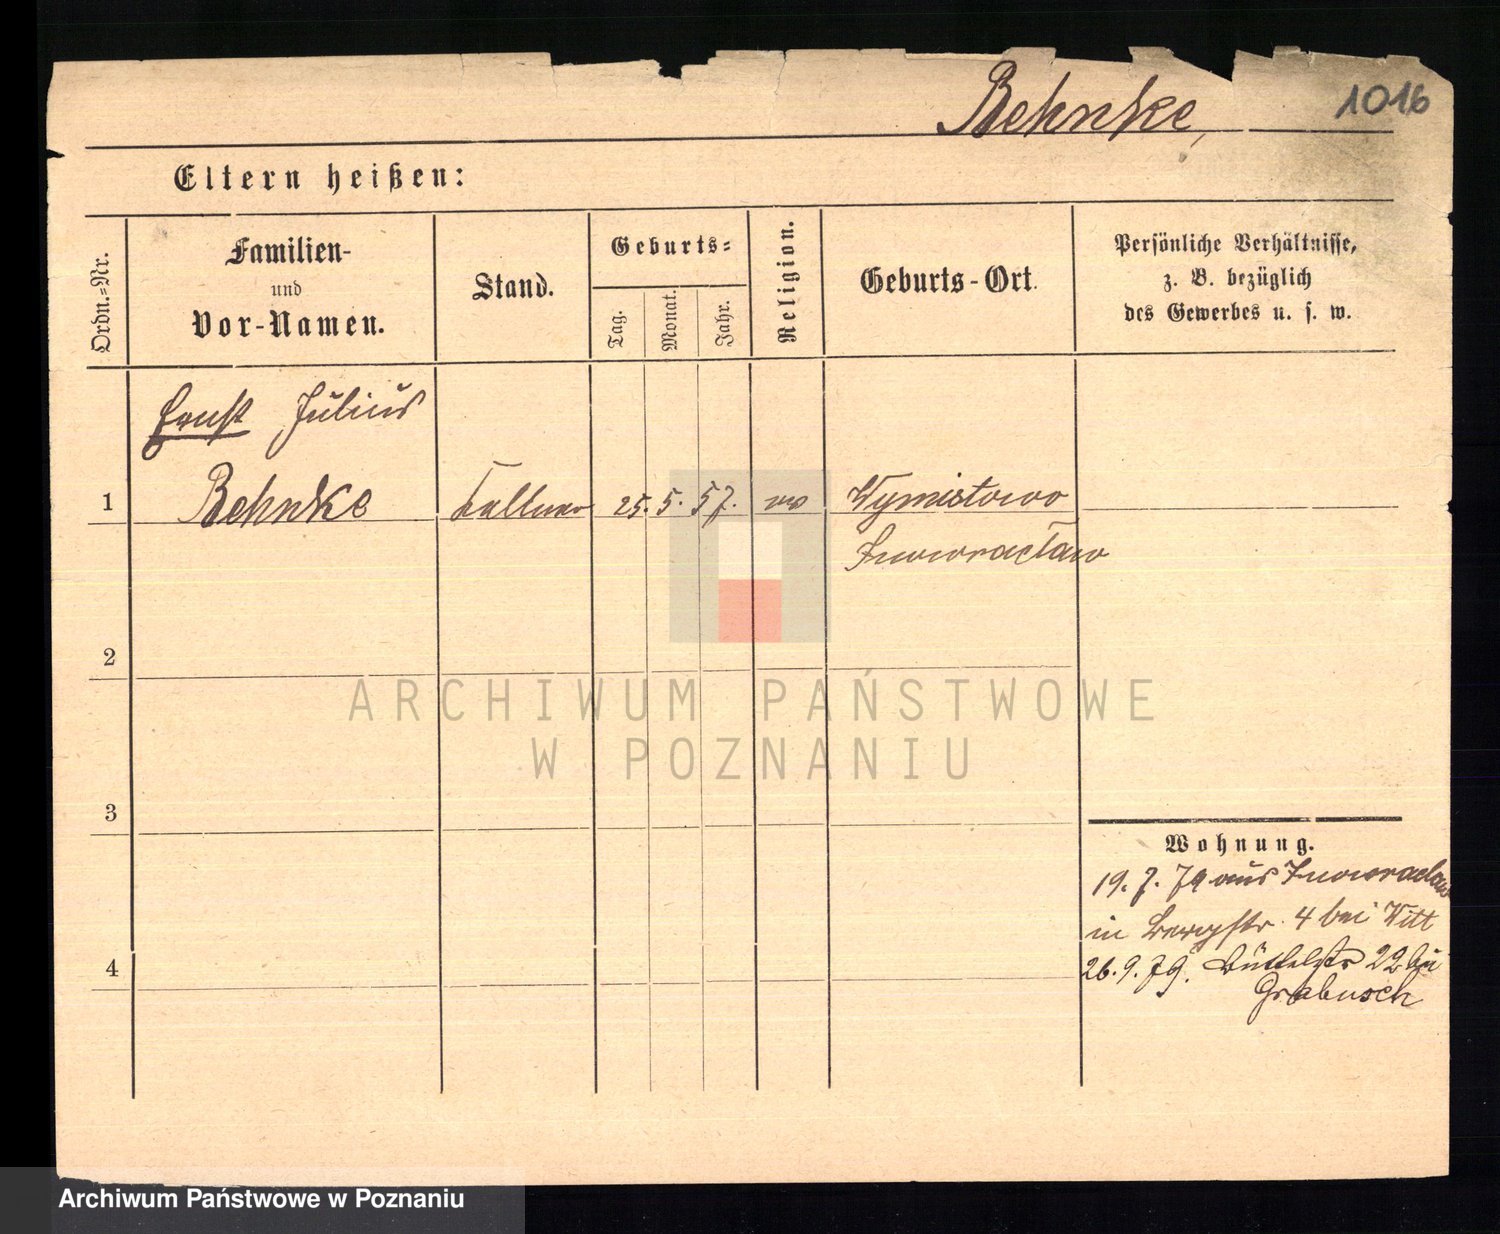 Behnke,
1016
Eltern heißen:
Ordn.=Nr.
Familien-
und
Vor-Namen.
Stand.
Geburts=
Tag.
Monat.
Jahr.
Religion.
Geburts-Ort.
Persönliche Verhältnisse,
z. B. bezüglich
des Gewerbes u. s. w.
Ernst Julius
1
Behnke
Kellner
25. 5. 57.
ev
Wymislowo
Inowraclaw
2
ARCHIWUM PAŃSTWOWE
W POZNANIU
3
Wohnung.
19. 7. 79 aus Inowraclaw
in Bergstr. 4 bei Witt
4
26. 9. 79. Büttelstr 22 bei
Grabusch
Archiwum Państwowe w Poznaniu